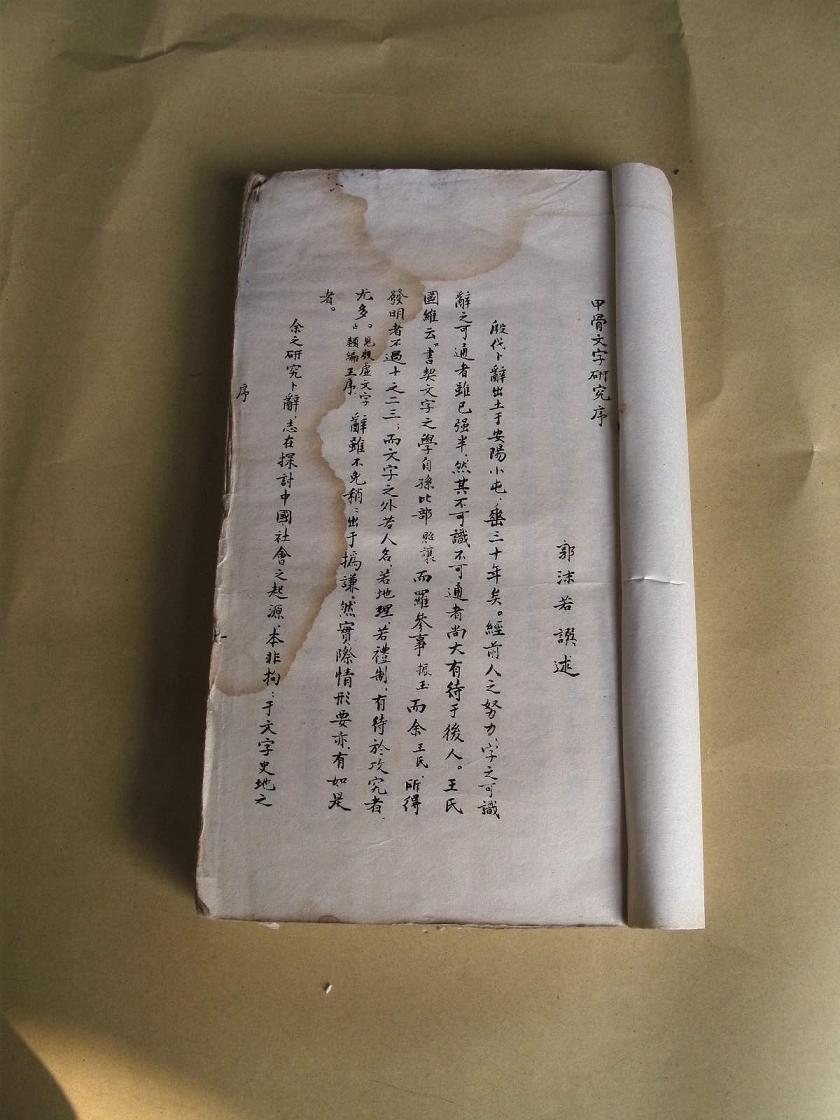 甲骨文字研究序
郭沫若譔述
殷代卜辭出土于安陽小屯，垂三十年矣。經前人之努力，字之可識
辭之可通者雖已强半，然其不可識不可通者尚大有待于後人。王氏
國維云“書契文字之學自孫比部詒讓而羅參事振玉而余王氏，所得
發明者不過十之二三；而文字之外若人名，若地理，若禮制，有待於攻究者，
尤多。”見殷虛文字類編王序，辭雖不免稍稍出于撝謙，然實際情形要亦有如是
者。
余之研究卜辭，志在探討中國社會之起源，本非拘拘于文字史地之
序
一